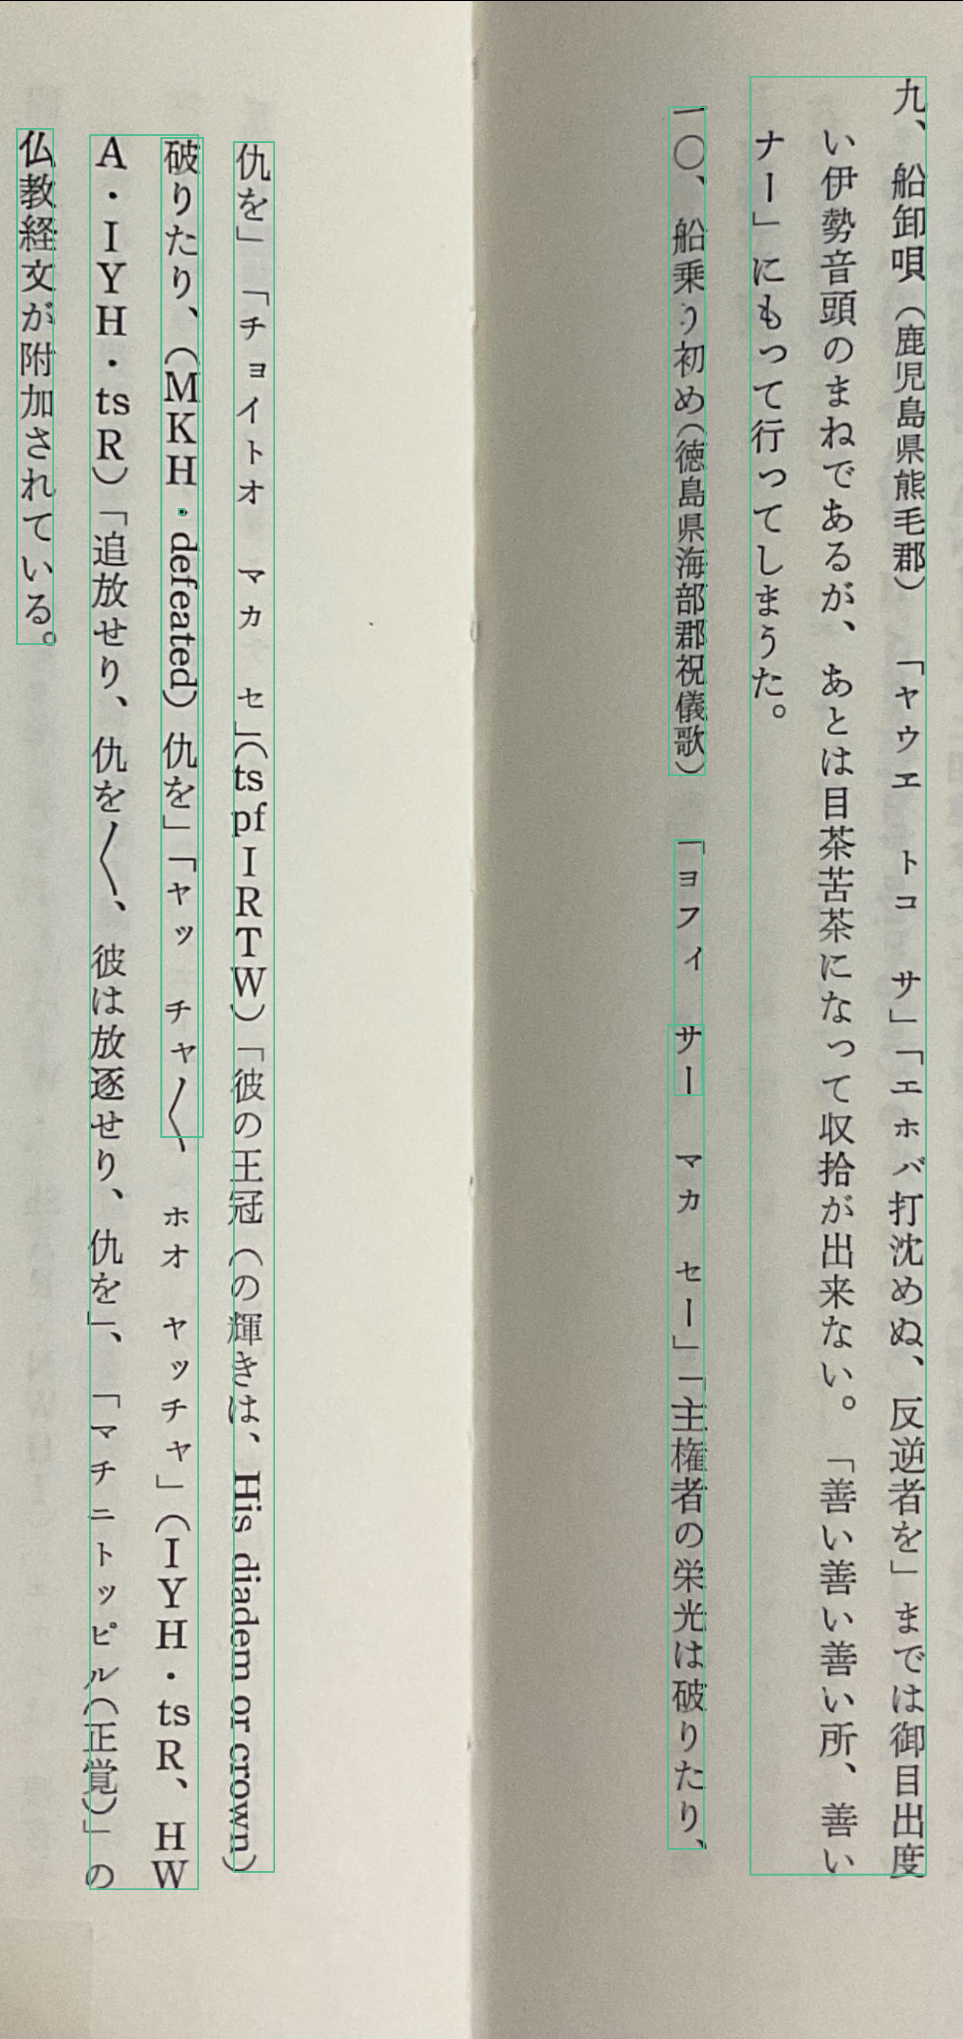 九、船卸唄（鹿児島県熊毛郡）　「ャウエ　トコ　サ」「エホバ打沈めぬ、反逆者を」までは御目出度
い伊勢音頭のまねであるが、あとは目茶苦茶になって収拾が出来ない。「善い善い善い所、善い
ナー」にもって行ってしまうた。
一〇、船乗り初め（徳島県海部郡祝儀歌）　「ョフィ　サー　マカ　セー」「主権者の栄光は破りたり、
仇を」「チョイトオ　マカ　セ」（ts pf I R T W）「彼の王冠（の輝きは、His diadem or crown）
破りたり、（M K H・defeated）仇を」「ャッ　チャ〱　ホオ　ャッチャ」（I Y H・ts R、H W
A・I Y H・ts R）「追放せり、仇を〱、彼は放逐せり、仇を」、「マチニトッピル（正覚）」の
仏教経文が附加されている。